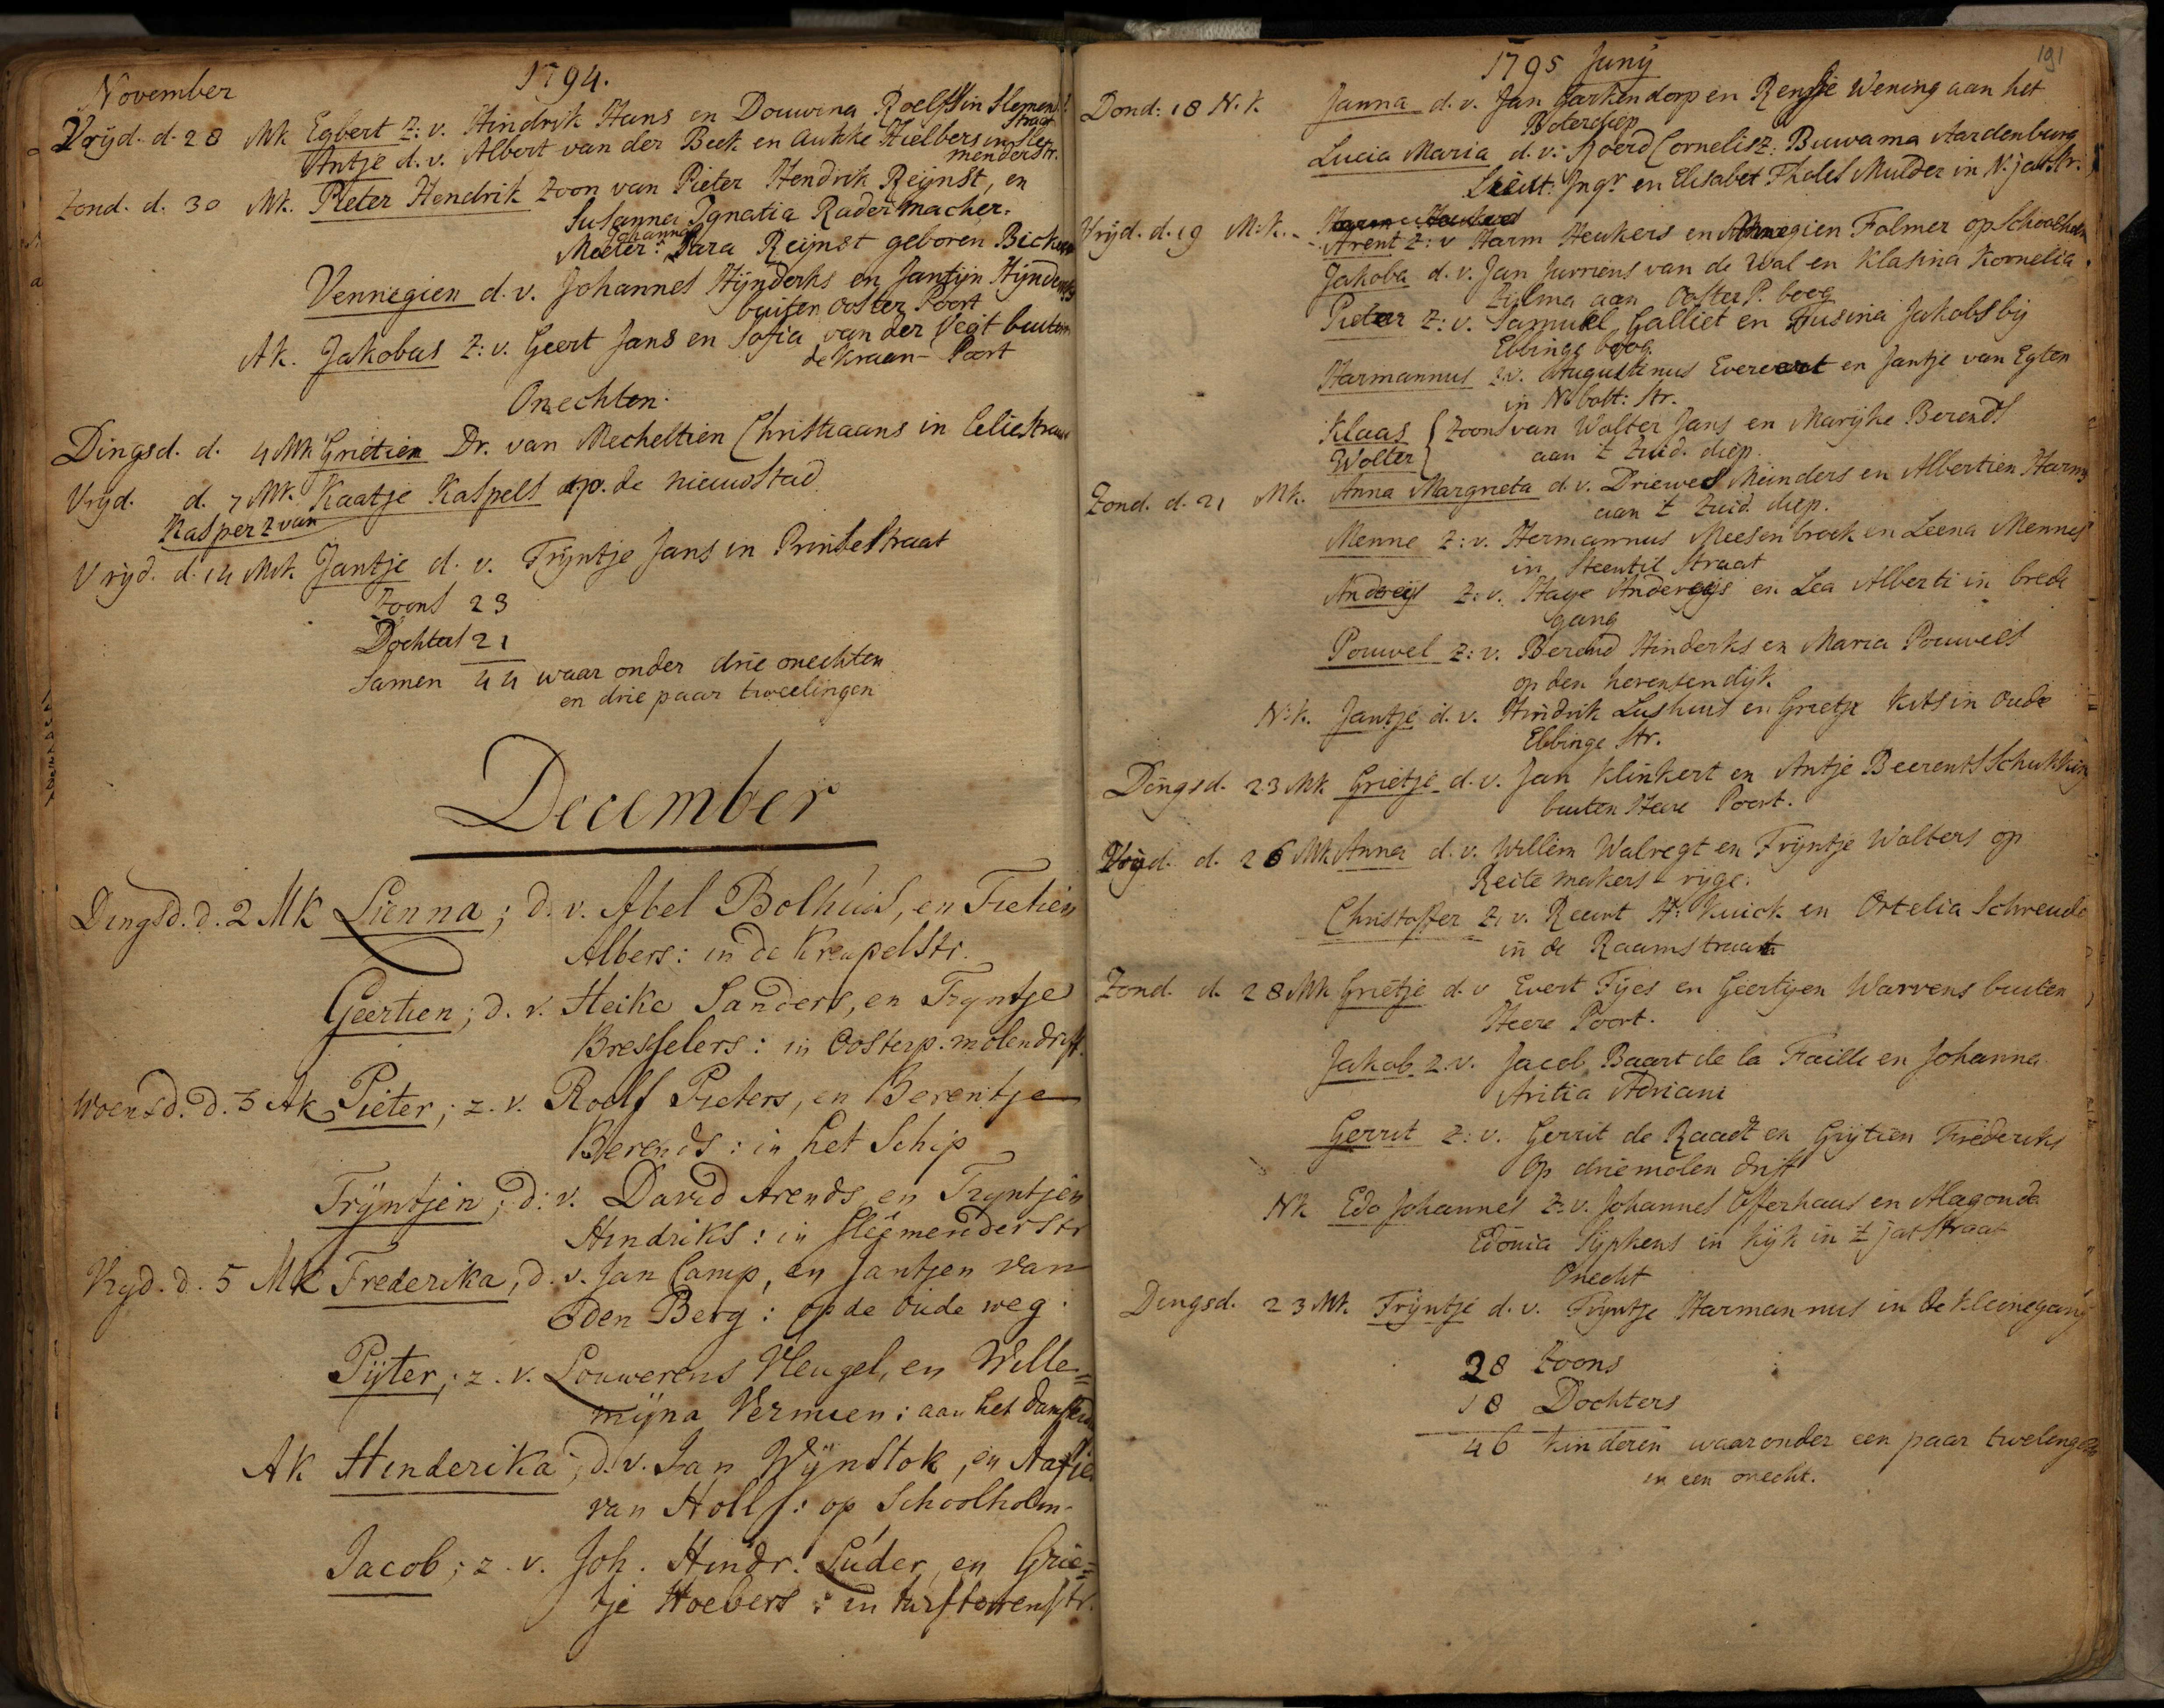 November 1794.
Vrijd. d. 28 Mk Egbert z: v. Hindrik Hans en Douwina Roelfs in Slemend:
straat
Antje d. v. Albert van der Beek en Aukke Hielbers in Sle
menderstr.
Zond. d. 30 Mk. Pieter Hendrik zoon van Pieter Hendrik Reijnst, en
Susanna Ignatia Radermacher.
Johanna
Meeter: Sara Reijnst geboren Bicker
Vennegien d. v. Johannes Hijnderks en Jantijn Hijnderks
buiten Ooster Poort
Ak. Jakobus z: v. Geert Jans en Sofia van der Vegt buiten
de kraan- Poort
Onechten.
Dingsd. d. 4 Mk Grietien Dr. van Mecheltien Christiaans in Celiestraat
Vrijd. d. 7 Mk. Kaatje Kaspels op de nieuwstad
Kasper z van
Vrijd. d. 14 Mk Jantje d. v. Trijntje Jans in Prinsestraat
Zoons 23
Dochters 21
Samen 44 waar onder drie onechten
en drie paar tweelingen
December
Dingsd. d. 2 MK Lienna; d. v. Abel Bolhuis, en Tietien
Albers: in de Kreupelstr.
Geertien; d. v. Heike Sanders, en Tryntje
Bresselers: in Oosterp. molendrift.
Woensd. d. 3 Ak Pieter; z. v. Roelf Pieters, en Berentje
Berends: in het Schip
Trÿntjen; d: v. David Arends, en Tryntjen
Hindriks: in Sleemenderstr
Vryd. d. 5 MK Frederika; d. v. Jan Camp, en Jantjen van
den Berg: op de oude weg.
Pÿter; z. v. Louwerens Vleugel, en Wille=
mÿna Vermeen: aan het
Ak Hinderika; d. v. Jan Wÿnstok, en Aafje
van Holls: op Schoolholm.
Jacob; z. v. Joh. Hindr. Luder, en Grie=
tje Hoebers: in turftorenstr.
1795 Junij 191
Dond: 18 N. k Janna d. v. Jan Garkendorp en Rensje Wening aan het
Boterdiep
Lucia Maria d. v: Roerd Cornelisz: Buwama Aardenburg
Luit: Ingr en Elisabet Tholes Mulder in N. jatstr.
Vrijd. d. 19 M. k. Harm Heukers
Arent z: v Harm Heukers en Annegien Folmer op Schoolholm
Jakoba d. v. Jan Jurriens van de Wal en Klasina Kornelia
Zijlma aan Ooster P. boog
Pieter z: v. Samuel Galliet en Husina Jakobs bij
Ebbinge boog.
Harmannus z. v. Augustinus Everert en Jantje van Egten
in N bott: str.
Klaas { Zoons van Wolter Jans en Marijke Berends
Wolter } aan 't Zuid. diep.
Zond. d. 21 Mk. Anna Margrieta d. v. Driewes Meinders en Albertien Harms
aan 't Zuid. diep.
Menne z: v. Hermannus Meesenbroek en Leena Mennes
in Steentil straat
Andreijs z: v. Haye Andereijs en Lea Alberti in brede
gang
Pouwel z: v. Berend Hinderks en Maria Pouwels
op den herensendijk
N. k. Jantje d. v. Hindrik Lushuis en Grietje Kits in Oude
Ebbinge Str.
Dingsd. 23 Mk Grietje d. v. Jan Klinkert en Antje Beerents Schukking
buiten Heere Poort.
Vrijd. d. 26 Mk Anna d. v. Willem Walregt en Trijntje Walters op
Reitemakers-rijge.
Christoffer z. v. Reurt H: Kuick en Ortelia Schreuder
in de Raamstraat
Zond. d. 28 Mk Grietje d. v Evert Tijes en Geertijen Warvens buiten
Heere Poort.
Jakob z. v. Jacob Baart de la Faille en Johanna
Aritia Adriani
Gerrit z: v. Gerrit de Raadt en Grijtien Frederiks
Op driemolen drift
Nk Edo Johannes z. v. Johannes Offerhaus en Alagonda
Edonia Sijpkens in kijk in 't jatstraat
Onecht
Dingsd. 23 Mk. Trijntje d. v. Trijntje Harmannus in de kleinegang
28 Zoons
18 Dochters
46 kinderen waaronder een paar twelingen
en een onecht.